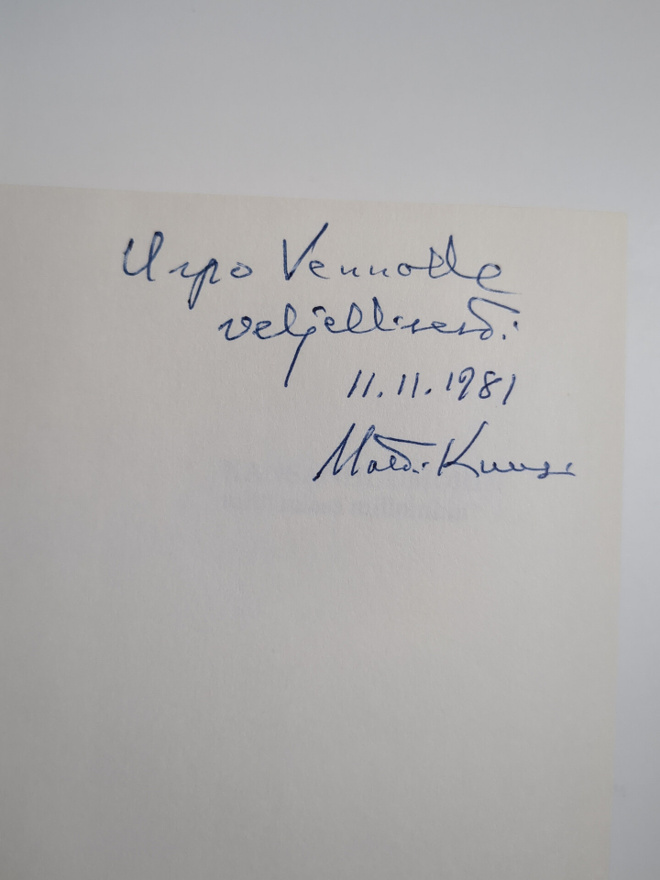 Urpo Vennolle
veljellisesti
11.11.1981
Matti Kuusi